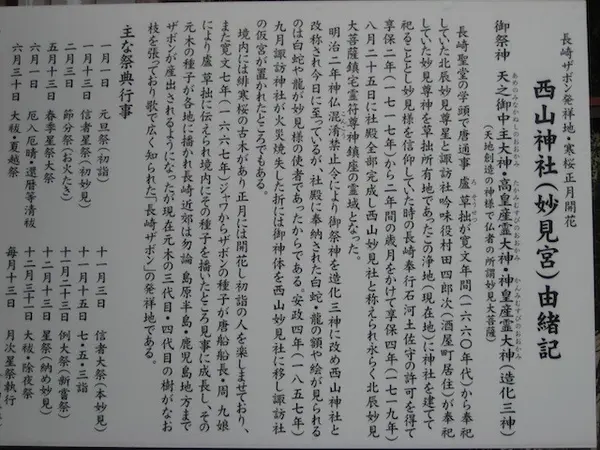 長崎ザボン発祥地・寒桜正月開花
西山神社(妙見宮)由緒記
御祭神 天之御中主大神・高皇産霊大神・神皇産霊大神(造化三神)
あめのみなかぬしのおおかみ
たかみむすびのおおかみ
かんみむすびのおおかみ
(天地創造の神様で仏者の所謂妙見大菩薩)
長崎聖堂の学頭で唐通事 盧草拙が寛文年間(一六六〇年代)から奉祀
していた北辰妙見尊星と諏訪社吟味役村田四郎次(酒屋町居住)が奉祀
していた妙見尊神を草拙所有地であったこの浄地(現在地)に神社を建てて
祀ることとし妙見様を信仰していた時の長崎奉行石河土佐守の許可を得て
享保二年(一七一七年)から二年間の歳月をかけて享保四年(一七一九年)
八月二十五日に社殿全部完成し西山妙見社と称えられ永らく北辰妙見
大菩薩鎮宅霊符尊神鎮座の霊域となった。
明治二年神仏混淆禁止令により御祭神を造化三神に改め西山神社と
こんこう
改称され今日に至っているが、社殿に奉納された白蛇、龍の額や絵が見られる
のは白蛇や龍が妙見様の使者であったからである。安政四年(一八五七年)
九月諏訪神社が火災焼失した折には御神体を西山妙見社に移し諏訪社
の仮宮が置かれたところでもある。
境内には緋寒桜の古木があり正月には開花し初詣の人を楽しませており、
また寛文七年(一六六七年)ジャワからザボンの種子が唐船船長・周九娘
により盧草拙に伝えられ境内にその種子を播いたところ見事に成長し、その
元木の種子が各地に播かれ長崎近郊は勿論 島原半島・鹿児島地方まで
ザボンが産出されるようになったが現在元木の三代目・四代目の樹がなお
枝を張っており歌で広く知られた「長崎ザボン」の発祥地である。
主な祭典行事
一月一日 元旦祭(初詣)
一月十三日 信者星祭(初妙見)
二月三日 節分祭(お火たき)
五月十三日 春季星祭大祭
六月一日 厄入厄晴・還暦等清祓
六月三十日 大祓・夏越祭
十一月三日 信者大祭(本妙見)
十一月十五日 七・五・三詣
十一月二十三日 例大祭(新嘗祭)
十二月十三日 星祭(納め妙見)
十二月三十一日 大祓・除夜祭
毎月十三日 月次星祭執行